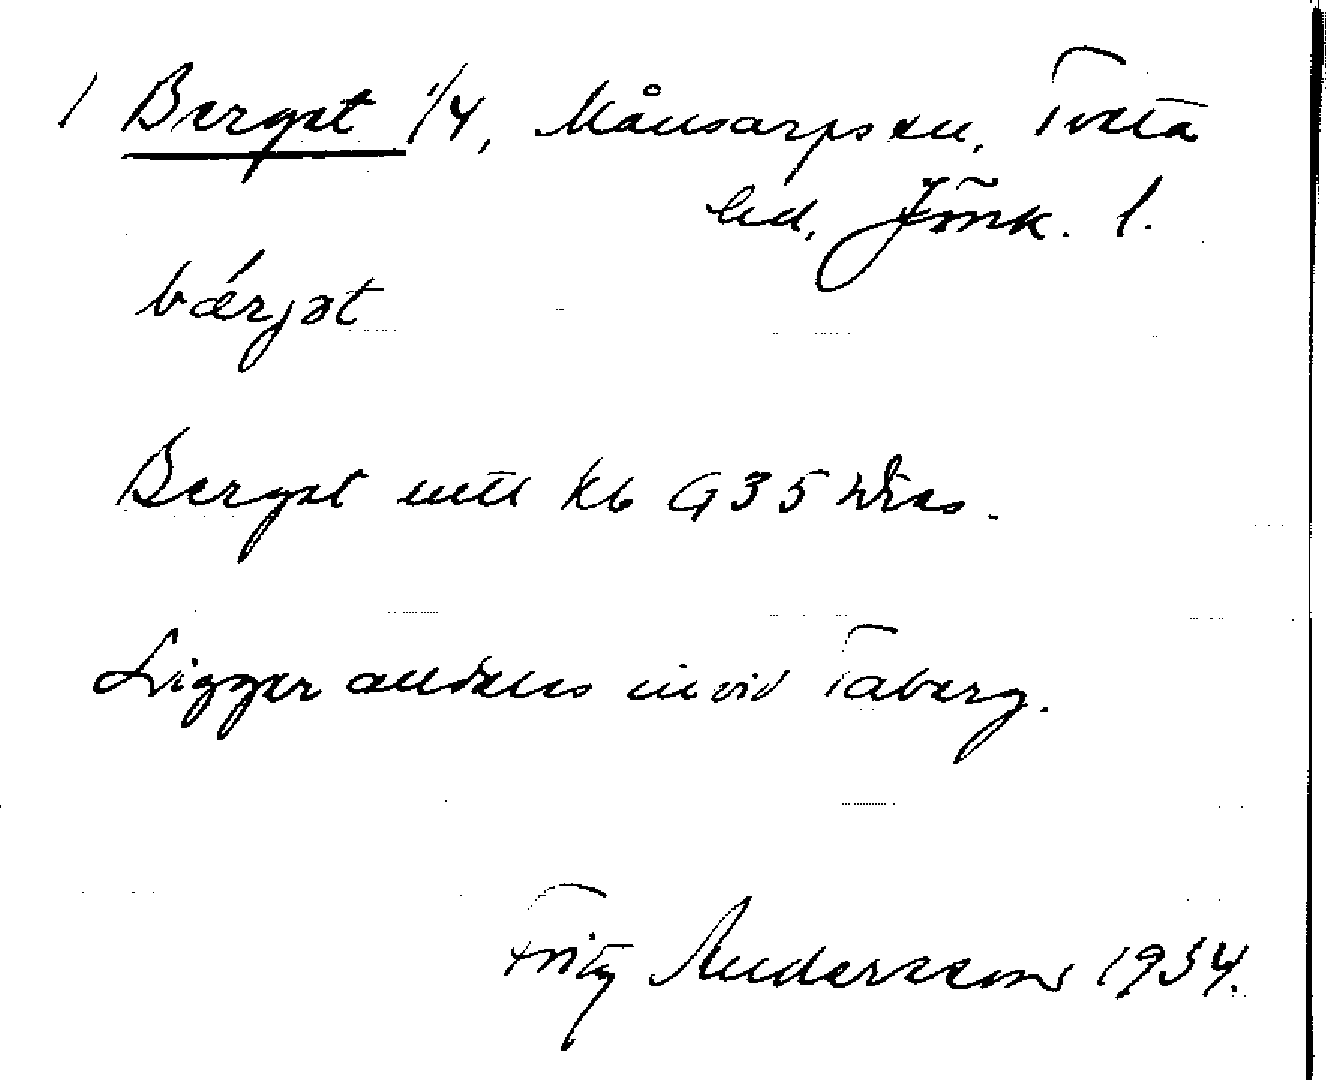 1 Berget 1/4, Månsarps sn, Tveta
hd, Jönk. l.
bǽrjət
Berget
Ligger alldeles invid Taberg.
Fritz Andersson 1934.